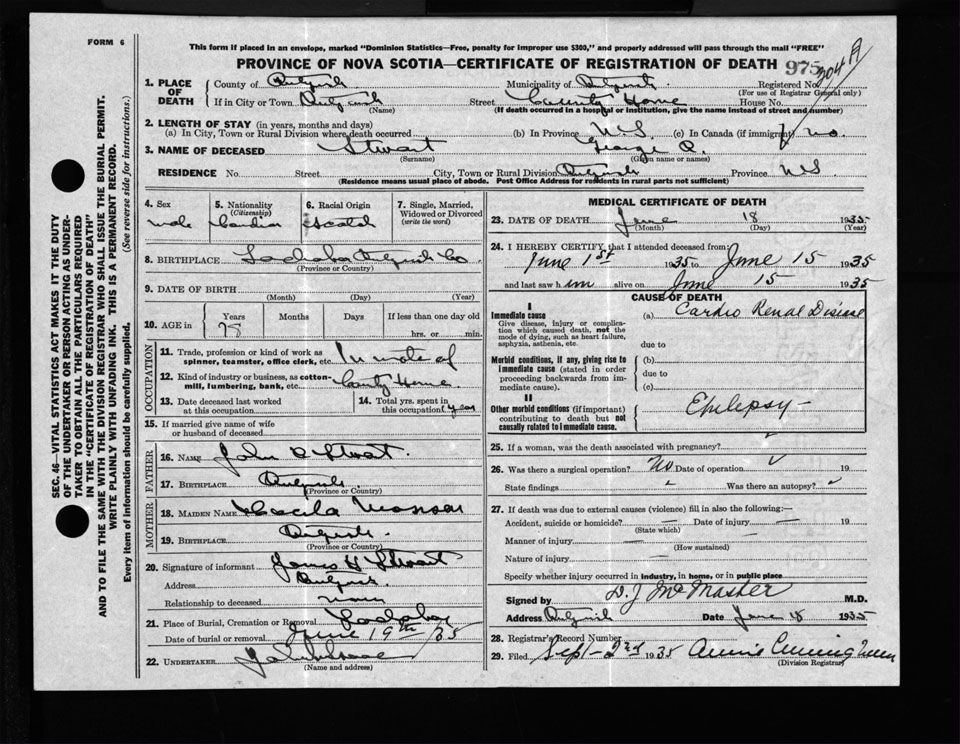 FORM 6
This form if placed in an envelope, marked "Dominion Statistics—Free, penalty for improper use $300," and properly addressed will pass through the mail "FREE"
PROVINCE OF NOVA SCOTIA—CERTIFICATE OF REGISTRATION OF DEATH
975
304 A
1. PLACE OF DEATH
County of
Municipality of
Registered No.
(For use of Registrar General only)
If in City or Town
(Name)
Street County Home House No.
(If death occurred in a hospital or institution, give the name instead of street and number)
2. LENGTH OF STAY (in years, months and days)
(a) In City, Town or Rural Division where death occurred (b) In Province N.S. (c) In Canada (if immigrant) no.
3. NAME OF DECEASED Stewart George
(Surname) (Given name or names)
RESIDENCE No. Street City, Town or Rural Division Province N.S.
(Residence means usual place of abode. Post Office Address for residents in rural parts not sufficient)
4. Sex male
5. Nationality (Citizenship) Canadian
6. Racial Origin
7. Single, Married, Widowed or Divorced (write the word)
8. BIRTHPLACE Lochaber Co.
(Province or Country)
9. DATE OF BIRTH
(Month) (Day) (Year)
10. AGE in
Years 78
Months
Days
If less than one day old
hrs. or min.
OCCUPATION
11. Trade, profession or kind of work as spinner, teamster, office clerk, etc. Inmate of
12. Kind of industry or business, as cotton-mill, lumbering, bank, etc. County Home
13. Date deceased last worked at this occupation
14. Total yrs. spent in this occupation
15. If married give name of wife or husband of deceased
FATHER
16. NAME John Stewart
17. BIRTHPLACE
(Province or Country)
MOTHER
18. MAIDEN NAME
19. BIRTHPLACE
(Province or Country)
20. Signature of informant James H Stewart
Address
Relationship to deceased none
21. Place of Burial, Cremation or Removal Lochaber
Date of burial or removal June 19th /35
22. UNDERTAKER
(Name and address)
MEDICAL CERTIFICATE OF DEATH
23. DATE OF DEATH June 18 1935
(Month) (Day) (Year)
24. I HEREBY CERTIFY that I attended deceased from:
June 1st 1935 to June 15 1935
and last saw him alive on June 15 1935
CAUSE OF DEATH
I
Immediate cause
Give disease, injury or complication which caused death, not the mode of dying, such as heart failure, asphyxia, asthenia, etc.
(a) Cardio Renal Disease
due to
Morbid conditions, if any, giving rise to immediate cause (stated in order proceeding backwards from immediate cause).
(b)
due to
(c)
II
Other morbid conditions (if important) contributing to death but not causally related to immediate cause.
Epilepsy –
25. If a woman, was the death associated with pregnancy?
26. Was there a surgical operation? No Date of operation 19
State findings Was there an autopsy?
27. If death was due to external causes (violence) fill in also the following:—
Accident, suicide or homicide? — Date of injury — 19
(State which)
Manner of injury —
(How sustained)
Nature of injury —
Specify whether injury occurred in industry, in home, or in public place
Signed by D. J. McMaster M.D.
Address Date June 18 1935
28. Registrar's Record Number
29. Filed Sept – 2nd 1935 Annie Cunningham
(Division Registrar)
SEC. 46—VITAL STATISTICS ACT MAKES IT THE DUTY
OF THE UNDERTAKER OR PERSON ACTING AS UNDER-
TAKER TO OBTAIN ALL THE PARTICULARS REQUIRED
IN THE "CERTIFICATE OF REGISTRATION OF DEATH"
AND TO FILE THE SAME WITH THE DIVISION REGISTRAR WHO SHALL ISSUE THE BURIAL PERMIT.
WRITE PLAINLY WITH UNFADING INK. THIS IS A PERMANENT RECORD.
Every item of information should be carefully supplied. (See reverse side for instructions.)